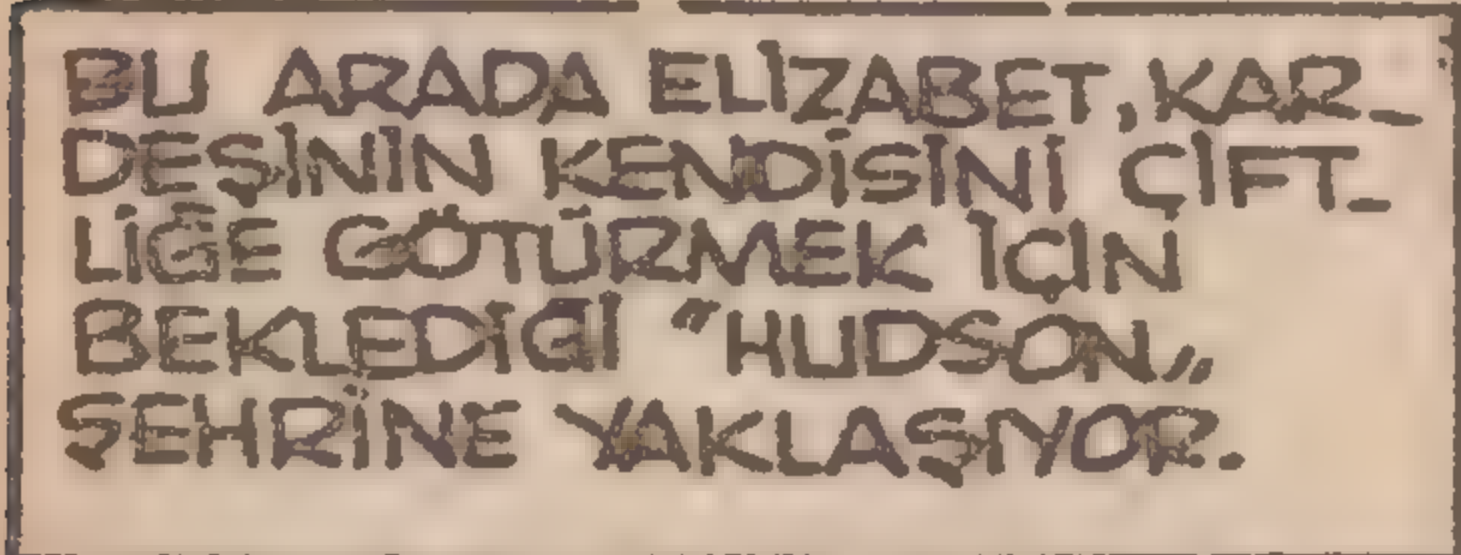 BU ARADA ELİZABET, KAR_
DEŞİNİN KENDİSİNİ ÇİFT_
LİĞE GÖTÜRMEK İÇİN
BEKLEDİĞİ "HUDSON„
ŞEHRİNE YAKLAŞIYOR.